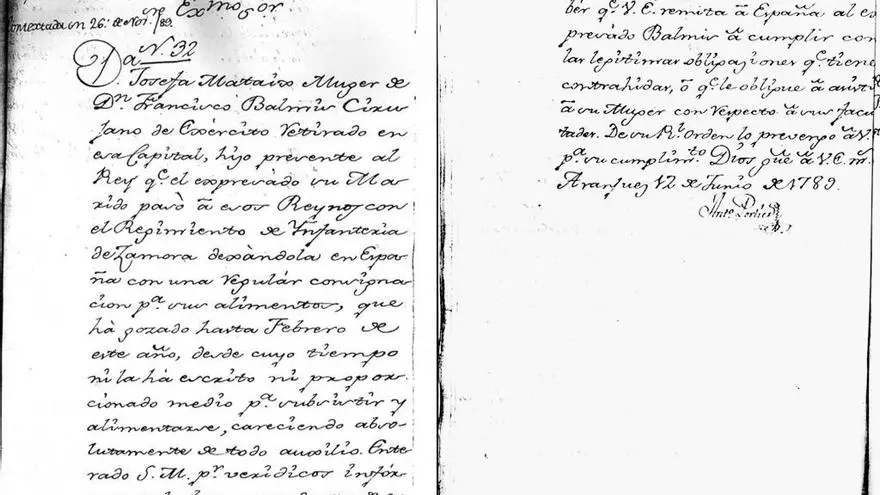 Exmo Sor
Contextada en 26. de Nov.re /89.
N. 32
Da Josefa Mataix Muger de
Dn. Francisco Balmis Ciru
jano de Exército Retirado en
esa Capital, hizo presente al
Rey qe. el expresado su Ma
rido pasò â esos Reynos con
el Regimiento de Ynfanteria
de Zamora dexàndola en Espa
ña con una regulár consigna
cion pa. sus alimentos, que
hà gozado hasta Febrero de
este año, desde cuyo tiempo
ni la hà escrito ni propor-
cionado medio pa. subsistir y
alimentarse, careciendo abso-
lutamente de todo auxilio. Ente
rado S. M. pr. veridicos infór
bér qe. V. E. remita â España al ex
presado Balmis â cumplir con
las legitimas obligaciones qe. tiene
contrahidas, ô qe. le obligue â asisti
â su Muger con respecto â sus facu
tades. De su Rl. Orden lo prevengo â V.
pa. su cumplimto. Dios gûe. â V. E. ms.
Aranjuez 12 de Junio de 1789.
Anto. Porlier